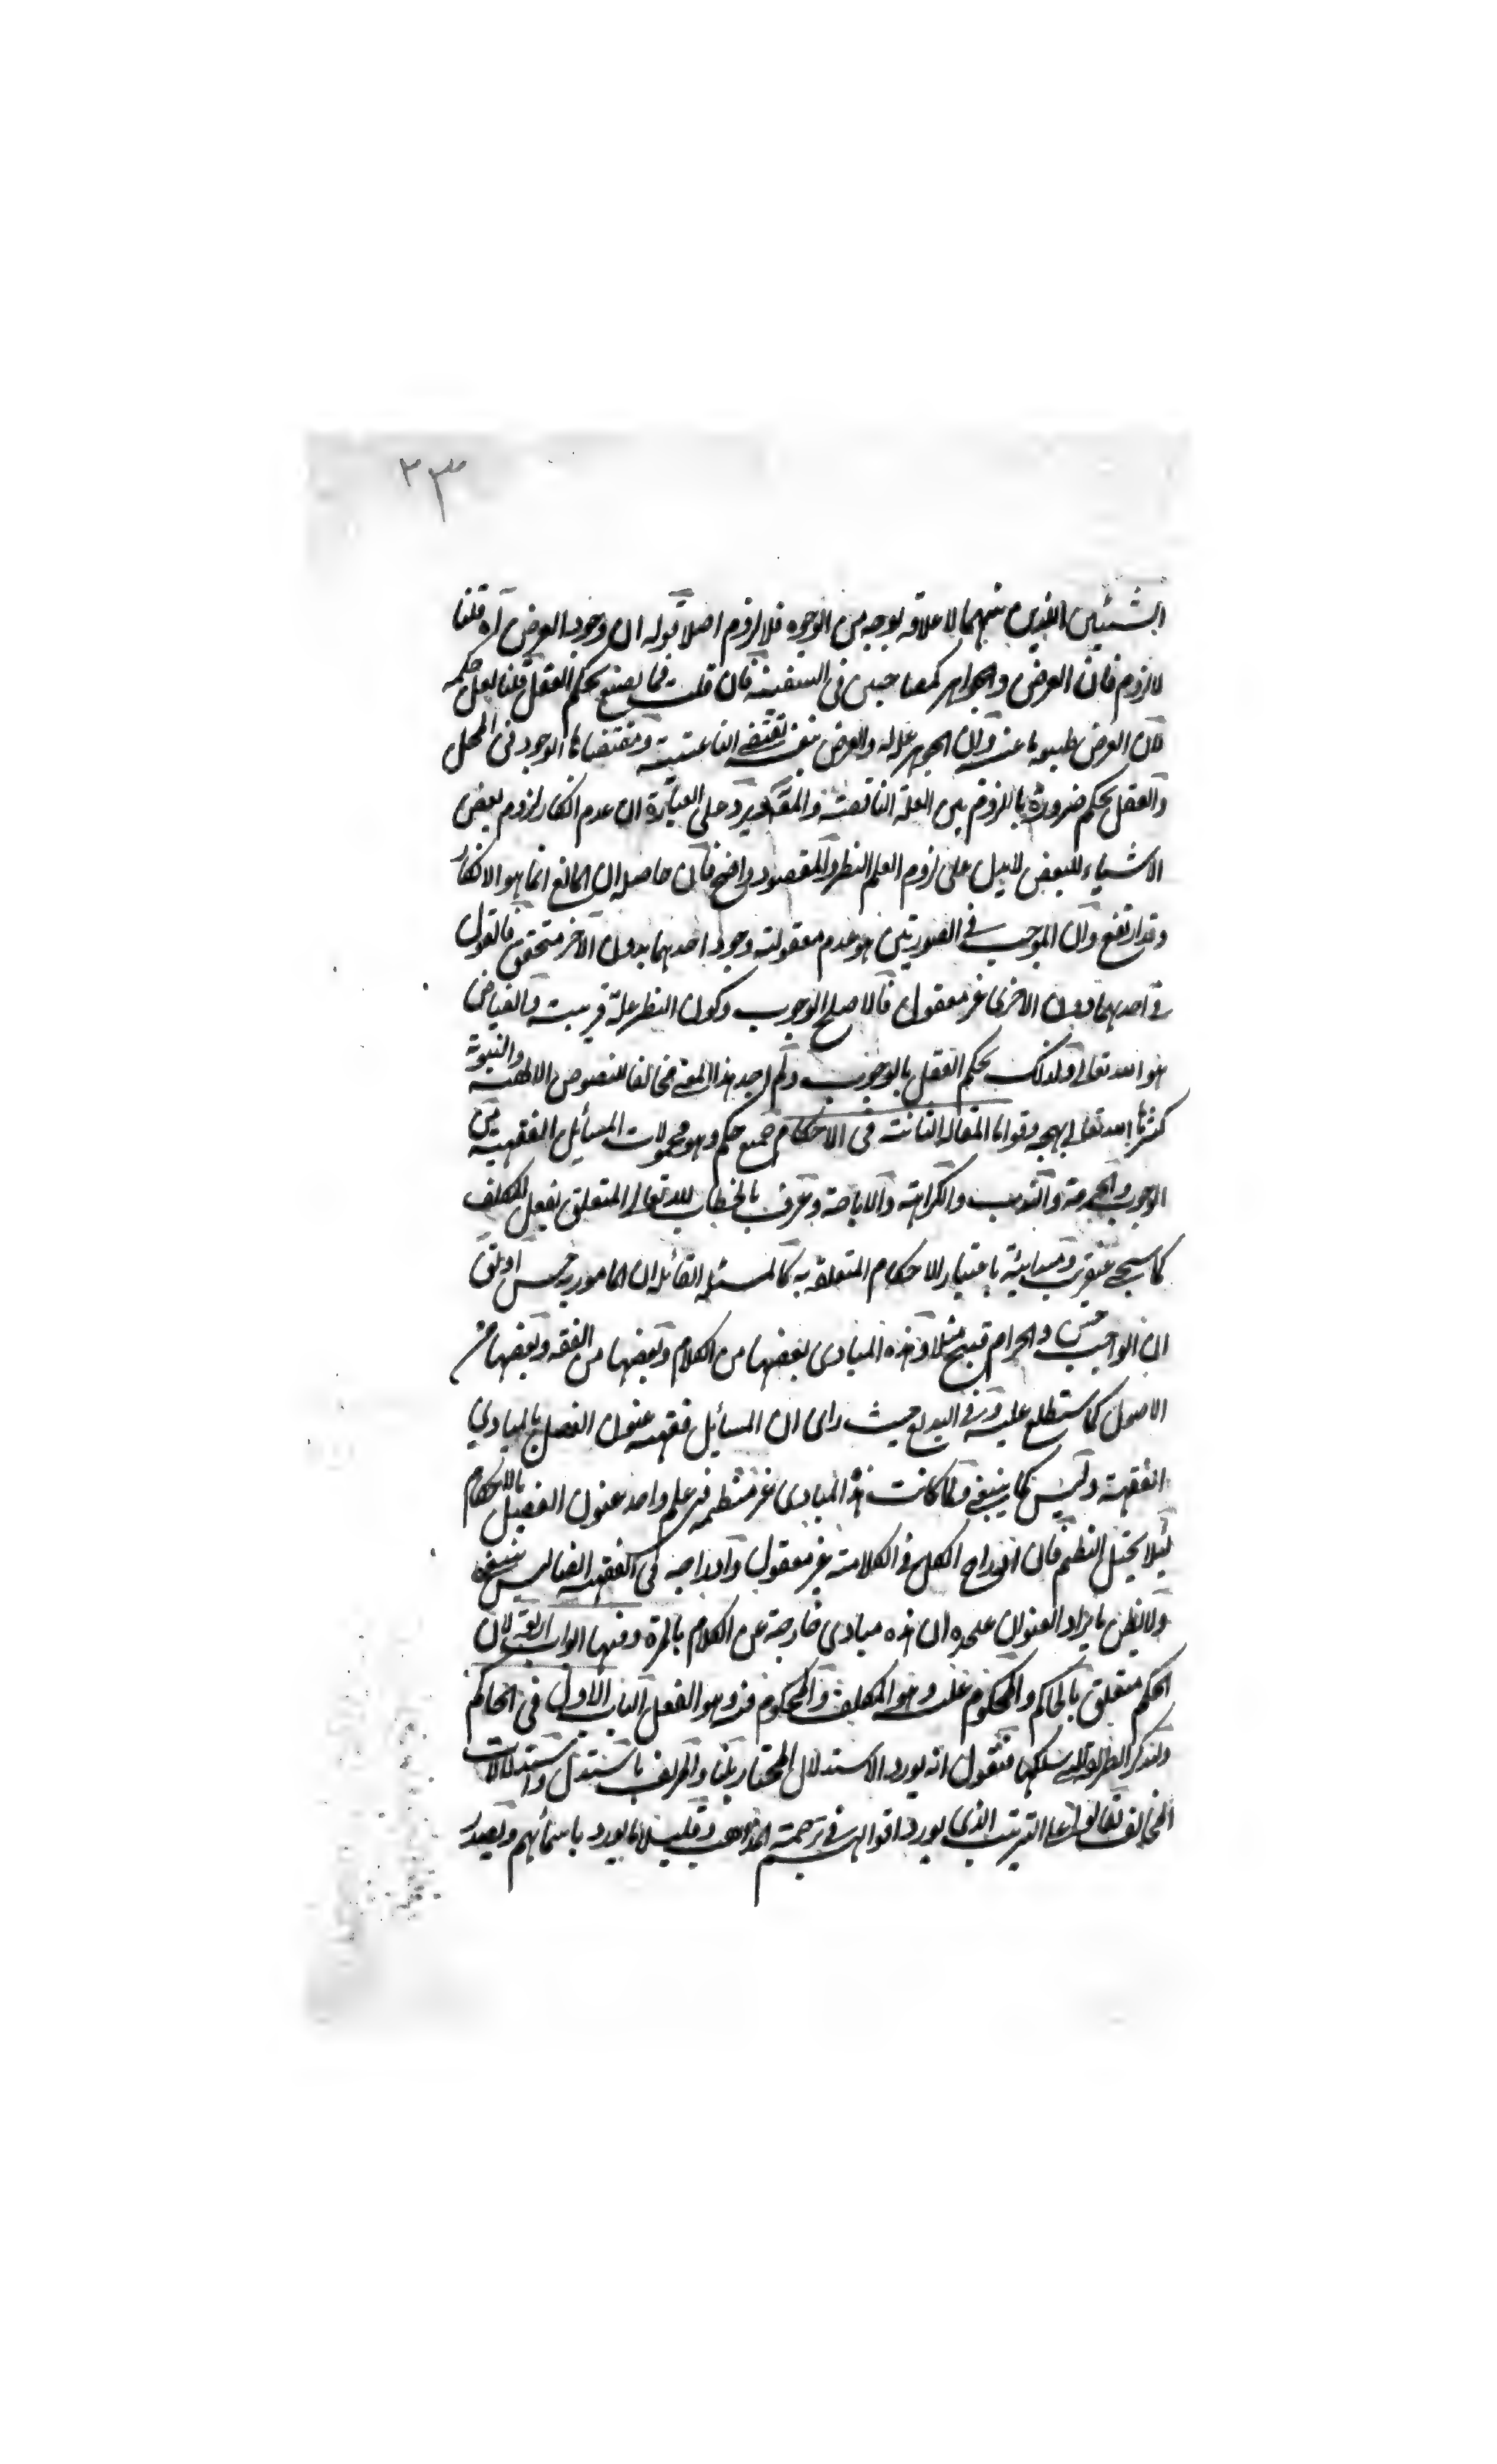 ٢٣
الشيئين اللذين بينهما لا علاقة بوجه من الوجوه فلا لزوم اصلا قوله ان وجود العرض آه قلنا
لا لزوم فان العرض والجواهر كمصاحبين في السفينة فان قلت فما يصنع بحكم العقل قلنا لعل حكمه
لان العرض طبيعة ناعتية وان الجوهر علة له والعرض نفسه تقتضي الناعتية ومقتضاها الوجود في المحل
والعقل يحكم ضرورة باللزوم بين العلة الناقصة و يرد على العبارة ان عدم انكار لزوم بعض
الاشياء للبعض لا يدل على لزوم العلم النظر والمقصود واضح فان حاصله ان المانع انما هو الانكار
وقد ارتفع وان الموجب في الصورتين هو عدم معقولية وجود احدهما بدون الآخر متحقق فالقول
في احدهما دون الاخرى غير معقول فالاصلح الوجوب وكون النظر علة قريبة والفياض
هو الله تعالى ولذلك يحكم العقل بالوجوب ولم اجد هذا المعنى مخالفا للنصوص الالهية والنبوية
كثرها الله تعالى المقالة الثانية في الاحكام جميع حكم وهو محمولات المسائل الفقهية من
الوجوب والحرمة والندب والكراهة والاباحة وعرف بالخطاب لله تعالى المتعلق بفعل المكلف
كما سيجئ عنقريب ومباينة باعتبار الاحكام المتعلقة به كالمسئلة القائلة ان المامور به حسن او
ان الواجب حسن والحرام قبيح مثلا وهذه المبادى بعضها من الكلام وبعضها من الفقه وبعضها من
الاصول كما ستطلع عليه وفي البديع حيث راى ان المسائل فقهية عنون الفصل بالمبادي
الفقهية وليس كما ينبغي ولما كانت هذه المبادى غير منتظمة في علم واحد عنون الفصل بالاحكام
لئلا يختل النظم فان اندراج الكل في الكلامية غير معقول وادراجه في الفقهية ايضا ليس
ولا يظن بايراد العنوان علحده ان هذه مبادى خارجة عن الكلام بالمرة وفيها ابواب اربعة لان
الحكم متعلق بالحاكم والمحكوم عليه وهو المكلف والمحكوم فيه وهو الفعل الباب الاول في الحاكم
ولنذكر الطريقة التي سلكها فنقول انه يورد الاستدلال المختار بلنا والمزيف باستدل واستدلالات
المخالف بقالوا على الترتيب الذي يورد اقوالهم في ترجمة المذاهب وقليلا ما يورد باسمائهم ويصدر